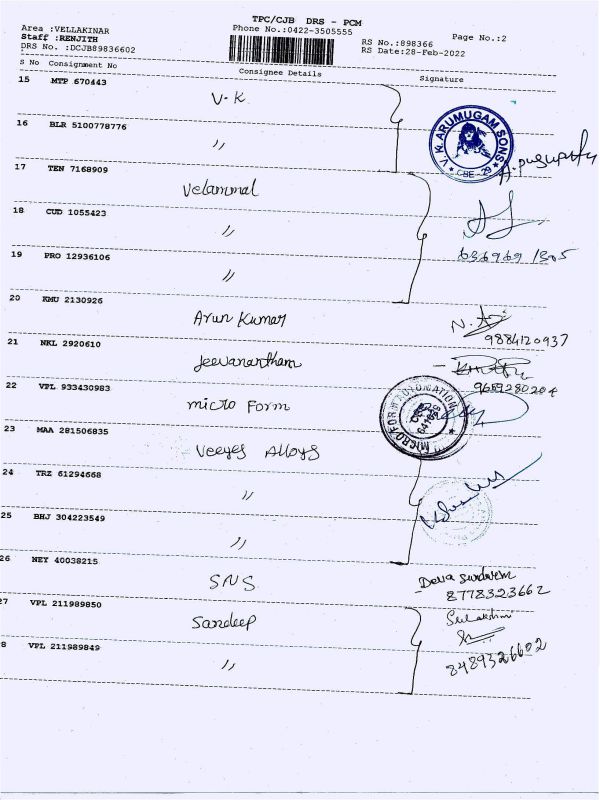 TPC/CJB DRS - PCM
Area :VELLAKINAR
Phone No.:0422-3505555
Page No.:2
Staff :RENJITH
RS No.:898366
DRS No. :DCJB89836602
RS Date:28-Feb-2022
S No Consignment No Consignee Details Signature
15 MTP 670443
V-K
16 BLR 5100778776
〃
V. K. ARUMUGAM SONS
* CBE - 29 *
17 TEN 7168909
Velammal
18 CUD 1055423
〃
19 PRO 12936106
〃
20 KMU 2130926
Arun Kumar
9884120937
21 NKL 2920610
Jeevanantham
9659280204
22 VPL 933430983
micro Form
MICRO FORM AUTOMATION
23 MAA 281506835
Veeyes Alloys
24 TRZ 61294668
〃
25 BHJ 304223549
〃
26 NEY 40038215
SNS
8778323662
27 VPL 211989850
Sandeep
8 VPL 211989849
〃
8489326602